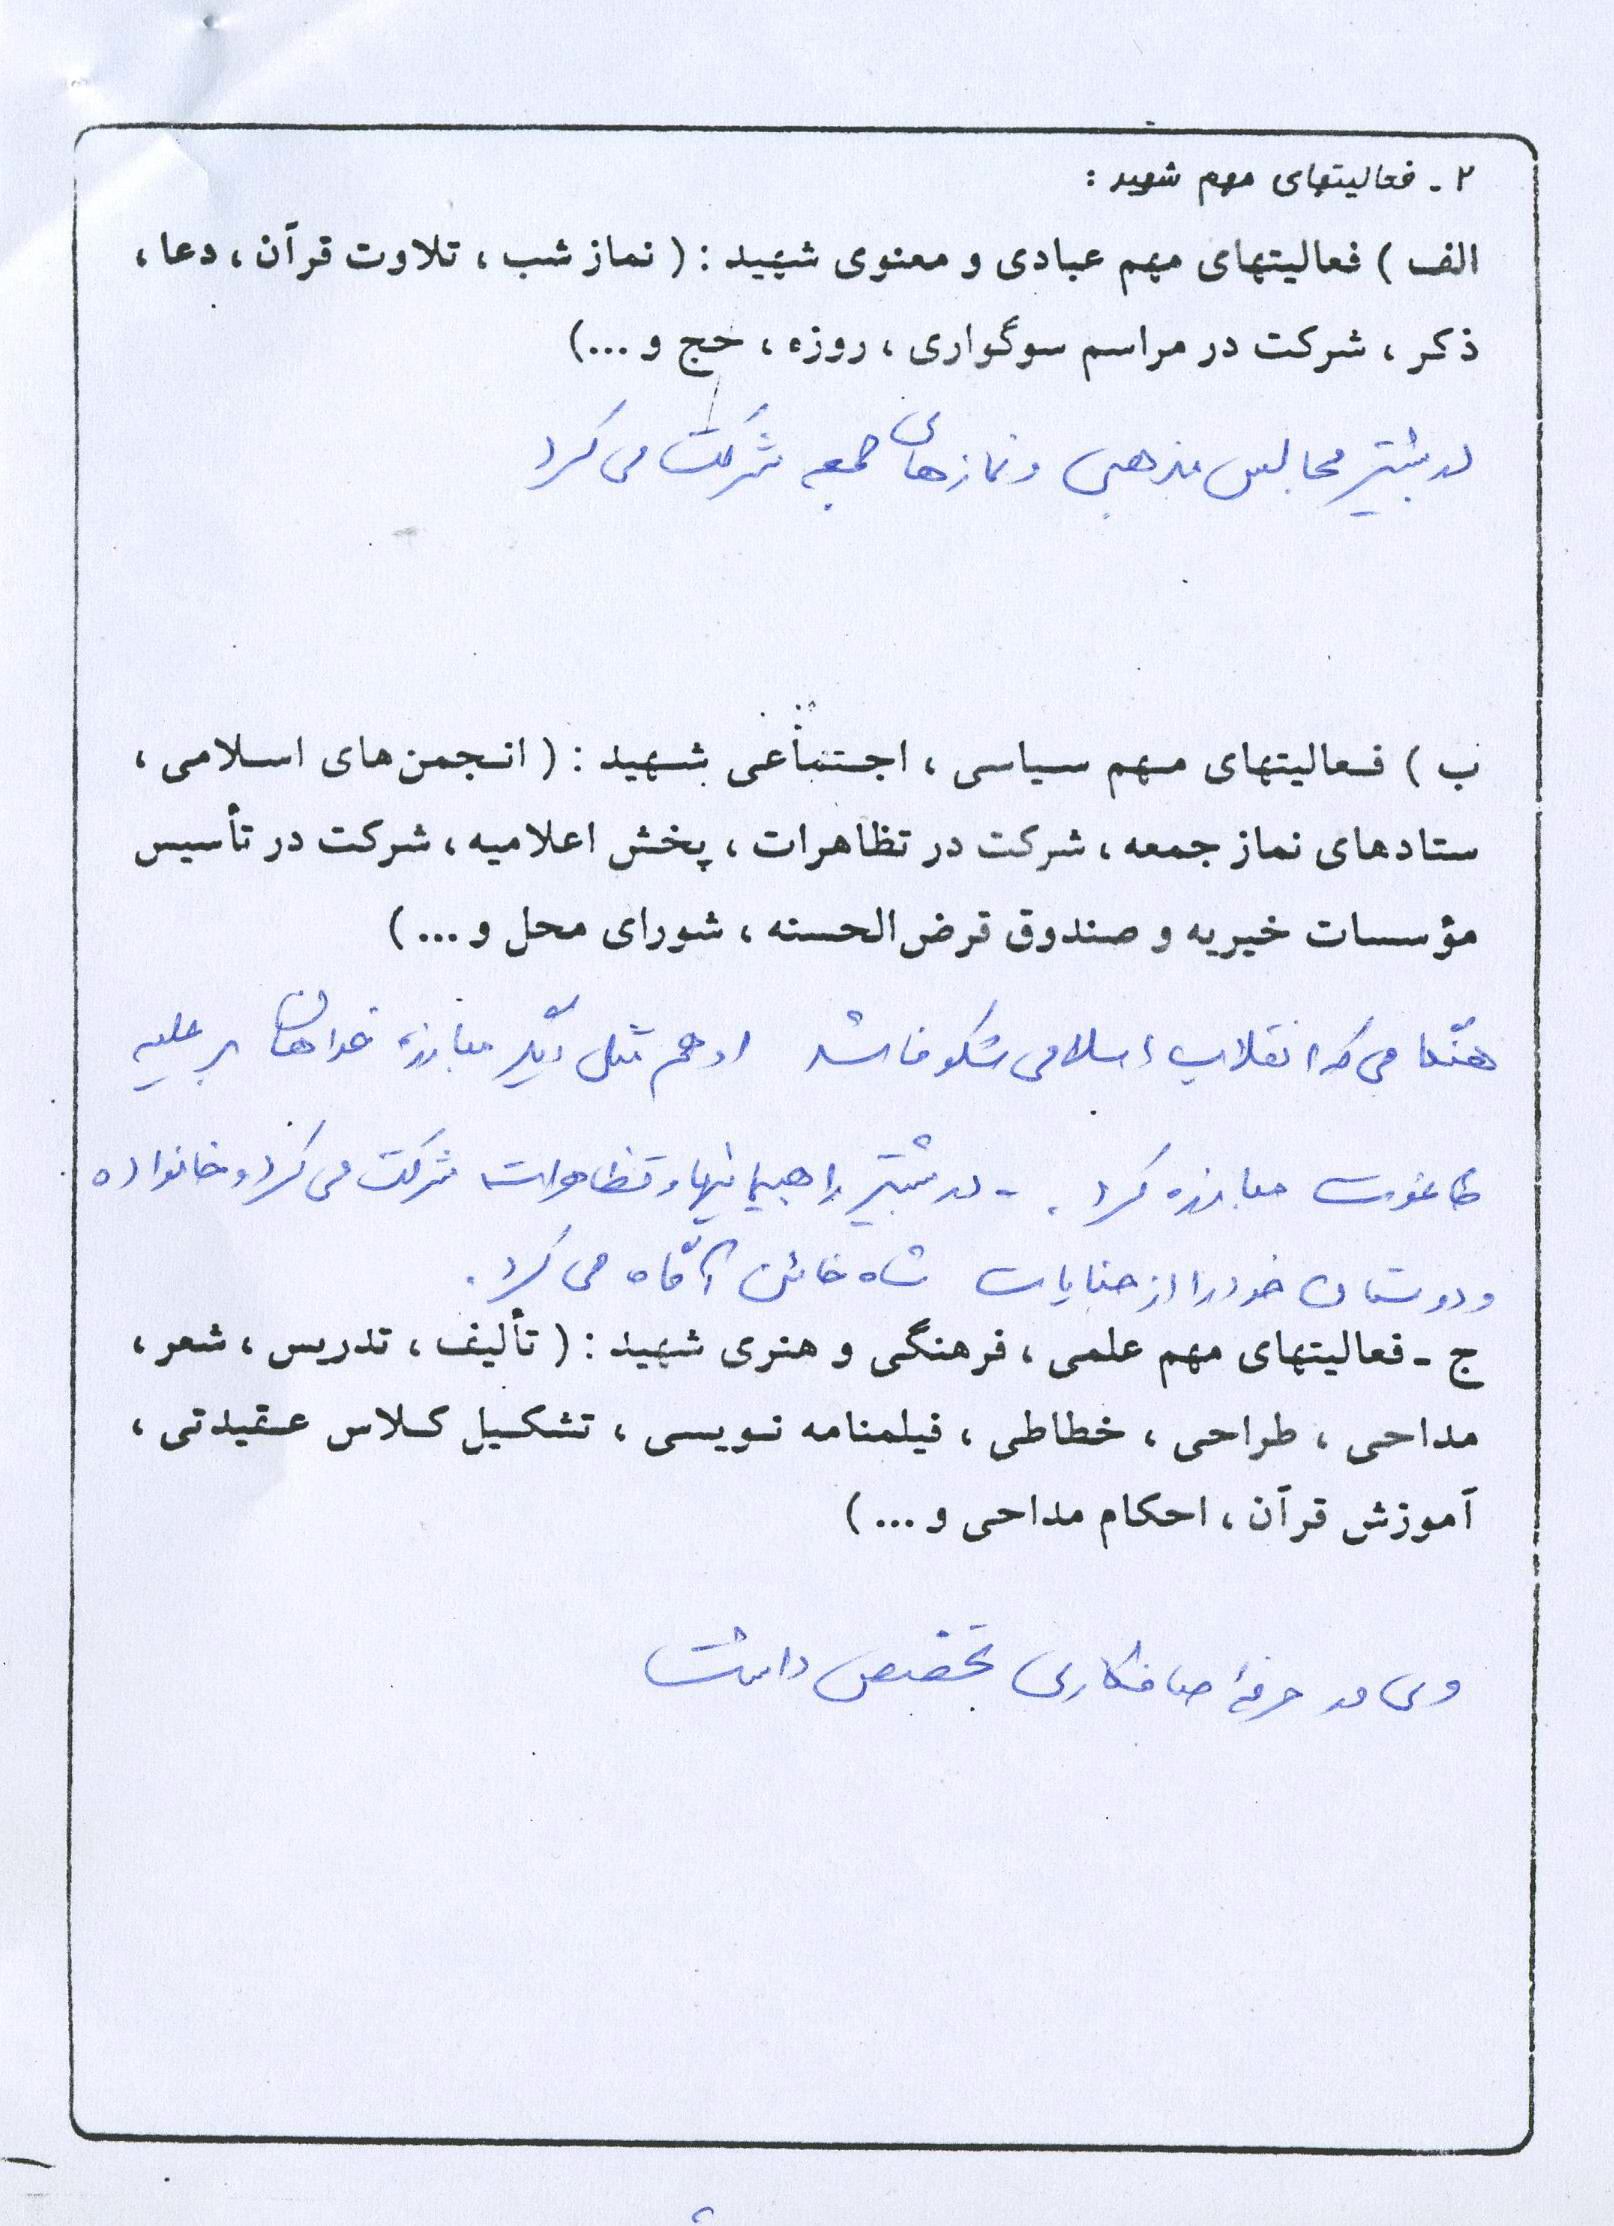 ۲ ـ فعالیتهای مهم شهید :
الف ) فعالیتهای مهم عبادی و معنوی شهید : ( نماز شب ، تلاوت قرآن ، دعا ،
ذکر ، شرکت در مراسم سوگواری ، روزه ، حج و ...)
در بیشتر مجالس مذهبی و نمازهای جمعه شرکت می کرد
ب ) فعالیتهای مهم سیاسی ، اجتماعی شهید : ( انجمن‌های اسلامی ،
ستادهای نماز جمعه ، شرکت در تظاهرات ، پخش اعلامیه ، شرکت در تأسیس
مؤسسات خیریه و صندوق قرض‌الحسنه ، شورای محل و ... )
هنگامی که انقلاب اسلامی شکوفا شد او هم مثل دیگر مبارزه خواهان بر علیه
طاغوت مبارزه کرد . - در بیشتر راهپیمائیها و تظاهرات شرکت می کرد و خانواده
و دوستان خود را از جنایات شاه خائن آگاه می کرد .
ج ـ فعالیتهای مهم علمی ، فرهنگی و هنری شهید : ( تألیف ، تدریس ، شعر ،
مداحی ، طراحی ، خطاطی ، فیلمنامه نویسی ، تشکیل کلاس عقیدتی ،
آموزش قرآن ، احکام مداحی و ... )
وی در حرفهٔ صافکاری تخصص داشت